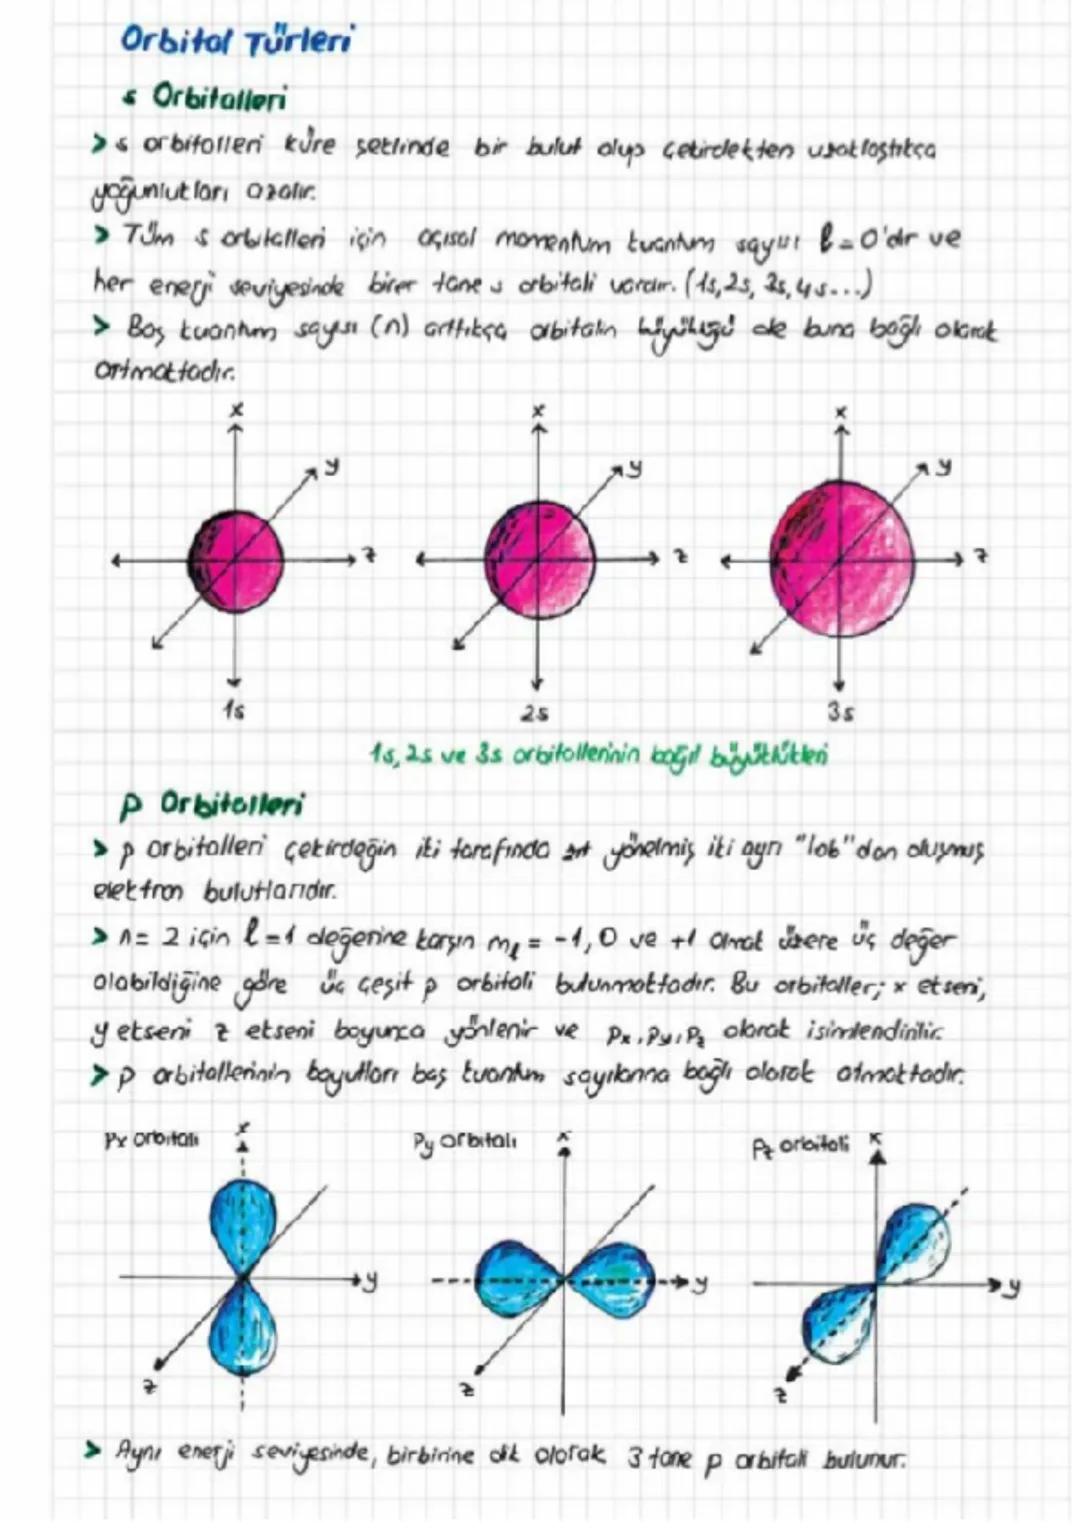 Orbital Türleri
s Orbitalleri
> s orbitalleri küre şeklinde bir bulut olup çekirdekten uzaklaştıkça
yoğunlukları azalır.
> Tüm s orbitalleri için açısal momentum kuantum sayısı l = 0'dır ve
her enerji seviyesinde birer tane s orbitali vardır. (1s, 2s, 3s, 4s...)
> Baş kuantum sayısı (n) arttıkça orbitalin büyüklüğü de buna bağlı olarak
artmaktadır.
x x x
y y y
z z z
1s 2s 3s
1s, 2s ve 3s orbitallerinin bağıl büyüklükleri
p Orbitalleri
> p orbitalleri çekirdeğin iki tarafında zıt yönelmiş iki ayrı "lob"dan oluşmuş
elektron bulutlarıdır.
> n = 2 için l = 1 değerine karşın mℓ = -1, 0 ve +1 olmak üzere üç değer
olabildiğine göre üç çeşit p orbitali bulunmaktadır. Bu orbitaller; x ekseni,
y ekseni z ekseni boyunca yönlenir ve Px, Py, Pz olarak isimlendirilir.
> p orbitallerinin boyutları baş kuantum sayılarına bağlı olarak atmaktadır.
Px orbitali x Py orbitali x Pz orbitali x
y y y
z z z
> Aynı enerji seviyesinde, birbirine dik olarak 3 tane p orbitali bulunur.